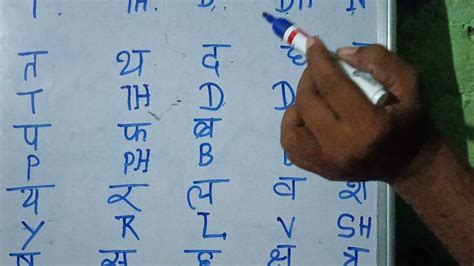 TH D. DH N
त थ द ध
T TH D D
प फ ब
P PH B
य र ल व श
Y R L V SH
ष स ह क्ष त्र